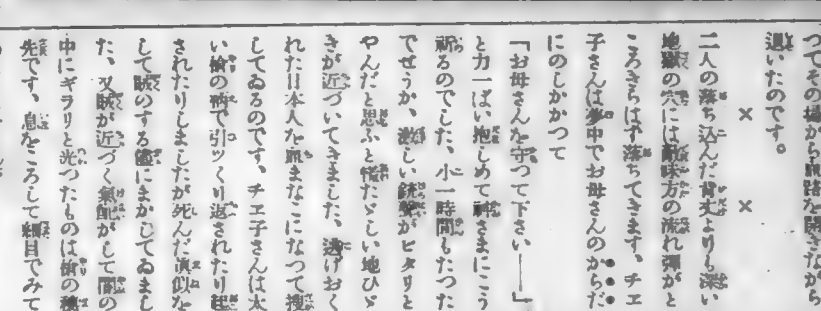 つてその場から血路を開きながら
退いたのです。
× ×
二人の落ち込んだ背丈よりも深い
地獄の穴には敵味方の流れ弾がと
ころきらはず落ちてきます、チエ
子さんは夢中でお母さんのからだ
にのしかかつて
「お母さんを守つて下さい――」
と力一ぱい抱しめて神さまにこう
祈るのでした、小一時間もたつた
でせうか、激しい銃声がピタリと
やんだと思ふと慌たゞしい地ひゞ
きが近づいてきました、逃げおく
れた日本人を血まなこになつて捜
してゐるのです、チエ子さんは太
い槍の柄で引ツくり返されたり起
されたりしましたが死んだ真似を
して賊のする儘にまかしてゐまし
た、又賊が近づく気配がして闇の
中にギラリと光つたものは槍の穂
先です、息をころして細目でみて